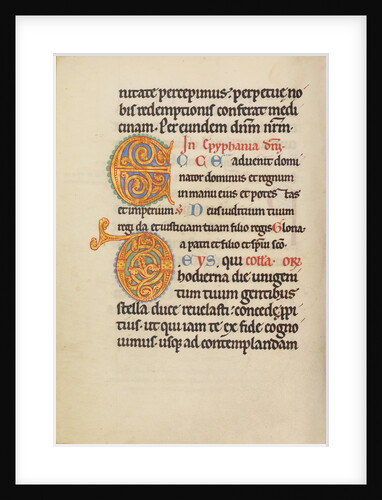 nitate percepimus: perpetue no
bis redemptionis conferat medi
cinam. Per eundem dnm nrm.
In Epyphania dni
ECCE advenit domi
nator dominus et regnum
in manu eius et potestas
et imperium: Deus iuditium tuum
regi da et iustitiam tuam filio regis Gloria
a patri et filio et spiui sco.
DEUS, qui colla. or
hodierna die unigeni
tum tuum gentibus
stella duce revelasti: concede ppi
tius. ut qui iam te ex fide cogno
vimus. usq ad contemplandam